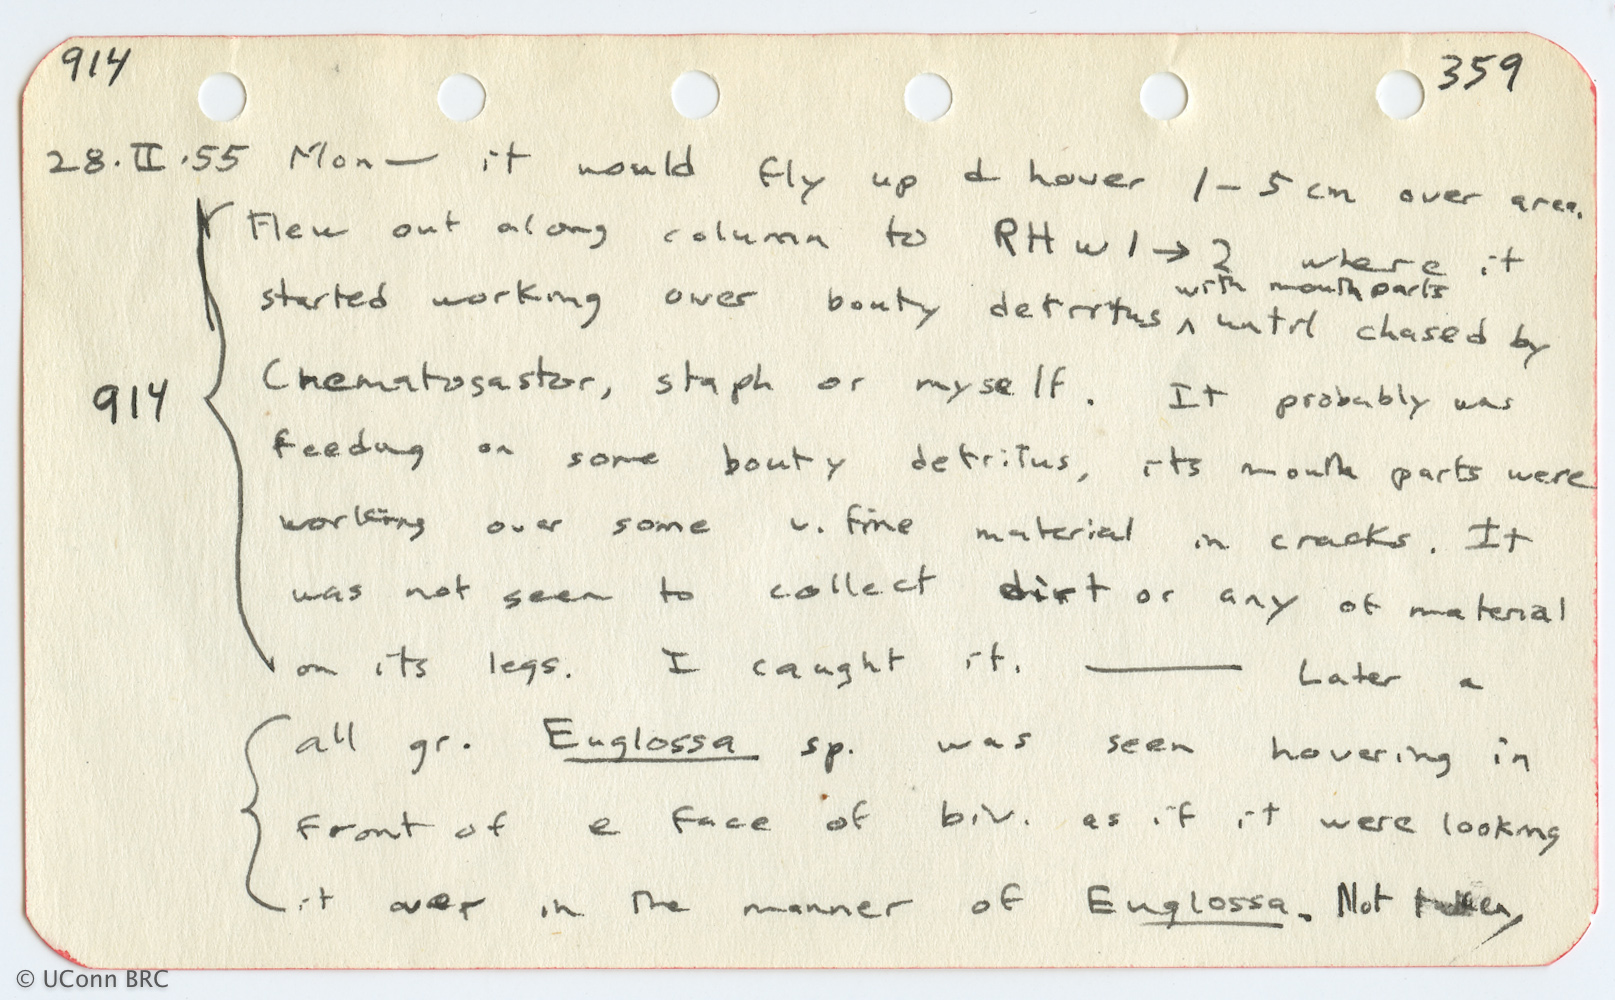 914 359
28.II.55 Mon— it would fly up & hover 1-5 cm over area.
Flew out along column to RHW 1→2 where it
started working over booty detritus ^ with mouth parts until chased by
Crematogaster, staph or myself. It probably was
feeding on some booty detritus, its mouth parts were
914 working over some v. fine material in cracks. It
was not seen to collect dirt or any ot material
on its legs. I caught it. —— Later a
all gr. Euglossa sp. was seen hovering in
front of e face of biv. as if it were looking
it over in the manner of Euglossa. Not taken,
© UConn BRC